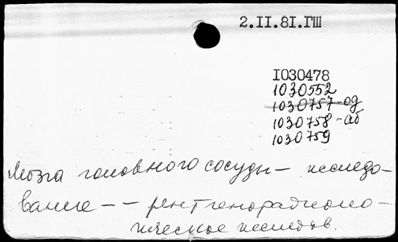 2.II.8I.ГШ
I030478
1030552
1030757-од
1030758-аб
1030759
Мозга головного сосуды — исследо-
вание — — рентгенорадиоло-
гическое исследов.